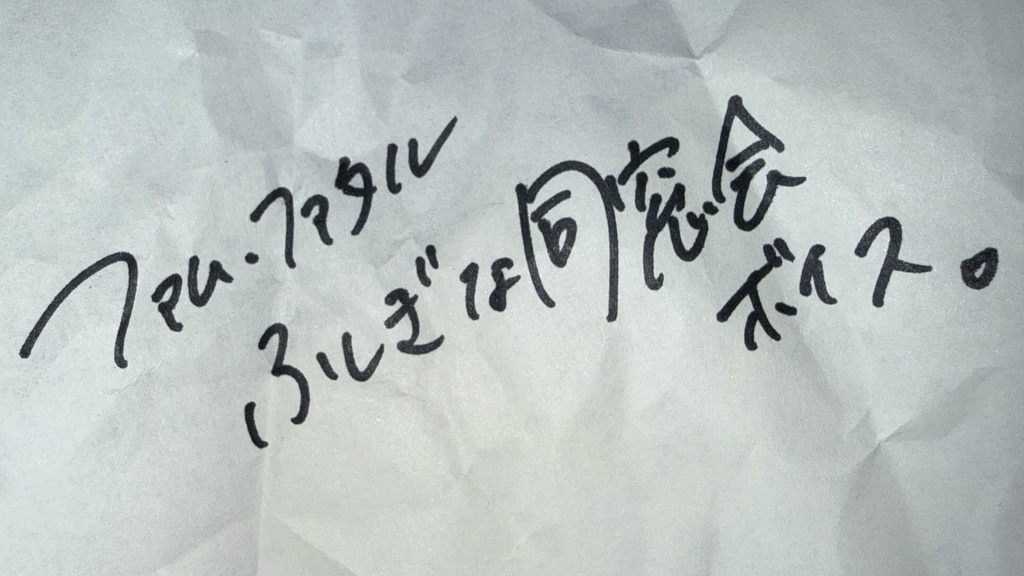 ファム・ファタル
ふしぎな同窓会
ボイス。